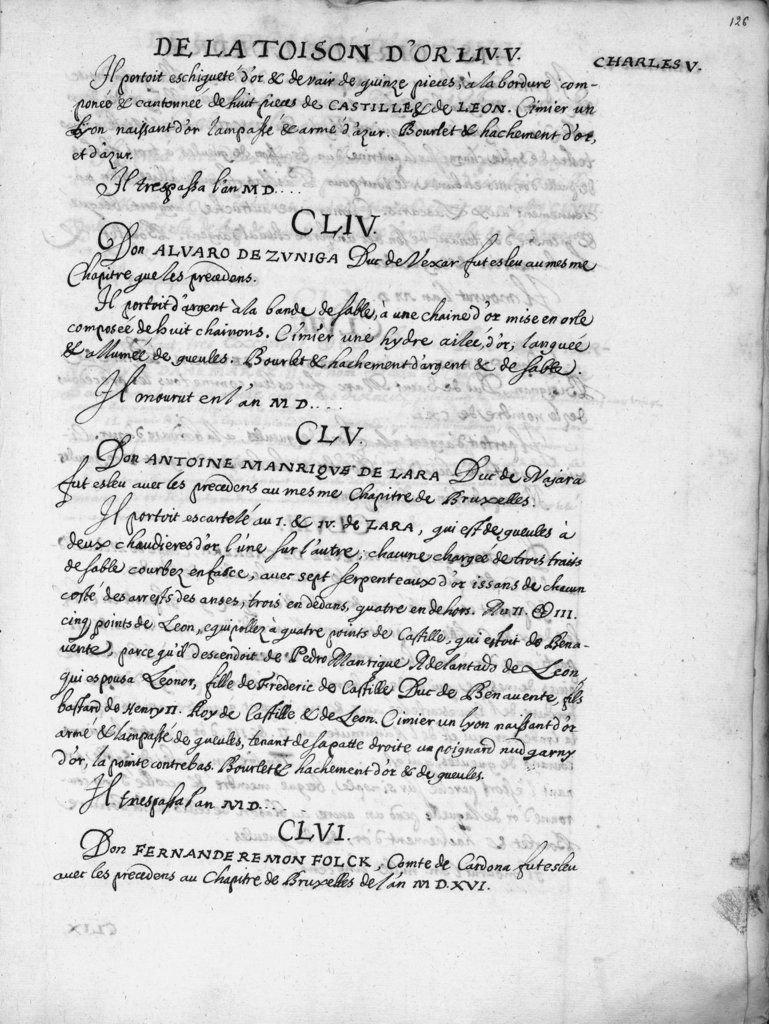 126
DE LA TOISON D'OR LIV. V.
CHARLES V.
Il portoit eschiqueté d'or & de vair de quinze pieces, à la bordure com-
ponée & cantonnée de huit pieces de CASTILLE & de LEON. Cimier un
Lyon naissant d'or lampassé & armé d'azur. Bourlet & hachement d'or,
et d'azur.
Il trespassa l'an M D....
CLIV.
Don ALVARO DE ZUNIGA Duc de Vexar fut esleu au mesme
Chapitre que les precedens.
Il portoit d'argent à la bande de sable, à une chaine d'or mise en orle
composée de huit chainons. Cimier une hydre ailée d'or, languée
& allumée de gueules. Bourlet & hachement d'argent & de sable.
Il mourut en l'an M D....
CLV.
Don ANTOINE MANRIQVE DE LARA Duc de Najara
fut esleu avec les precedens au mesme Chapitre de Bruxelles.
Il portoit escartelé au I. & IV. de LARA, qui est de gueules à
deux chaudieres d'or l'une sur l'autre, chacune chargée de trois traits
de sable courbez en fasce, avec sept serpenteaux d'or issans de chacun
costé des arrests des anses, trois en dedans, quatre en dehors. Au II. & III.
cinq points de Leon, equipollez à quatre points de Castille, qui estoit de Bena-
vente, parce qu'il descendoit de Pedro Manrique Adelantado de Leon,
qui espousa Leonor, fille de Fréderic de Castille Duc de Benavente, fils
bastard de Henry II. Roy de Castille & de Leon. Cimier un Lyon naissant d'or
armé & lampassé de gueules, tenant de sa patte droite un poignard nud garny
d'or, la pointe contrebas. Bourlet & hachement d'or & de gueules.
Il trespassa l'an M D....
CLVI.
Don FERNANDE REMON FOLCK, Comte de Cardona fut esleu
avec les precedens au Chapitre de Bruxelles de l'an M D. XVI.